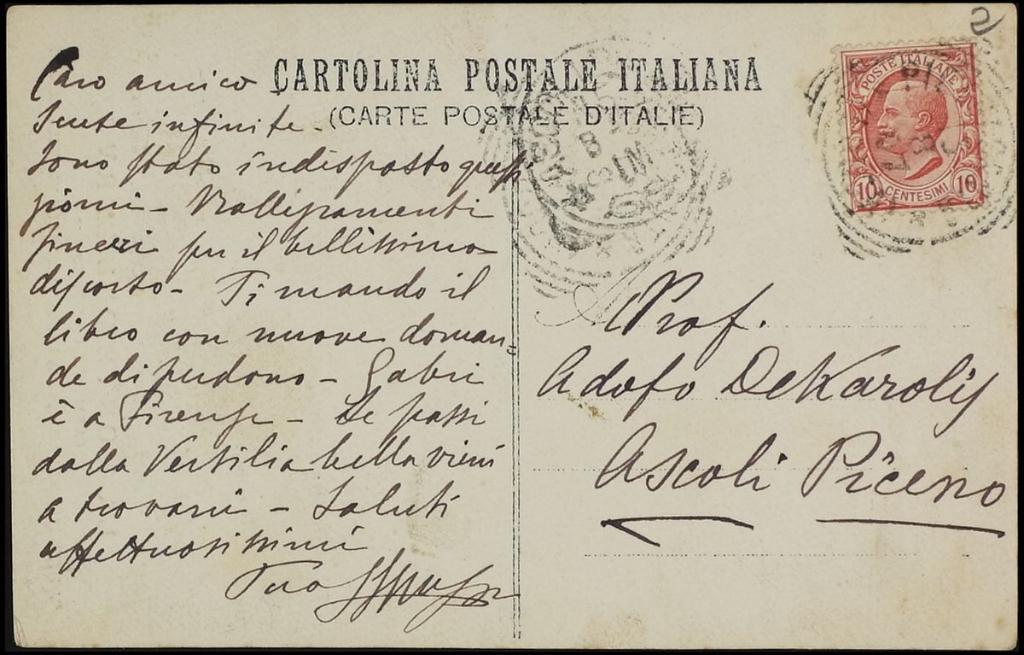 CARTOLINA POSTALE ITALIANA
(CARTE POSTALE D'ITALIE)
Caro amico
Scuse infinite -
Sono stato indisposto questi
giorni - Rallegramenti
sinceri per il bellissimo
discorso - Ti mando il
libro con nuove doman=
de di perdono - Gabri
è a Firenze - Se passi
dalla Versilia bella vieni
a trovarci - Saluti
affettuosissimi
Tuo
POSTE ITALIANE
10 CENTESIMI 10
Prof.
Adolfo DeKarolis
Ascoli Piceno